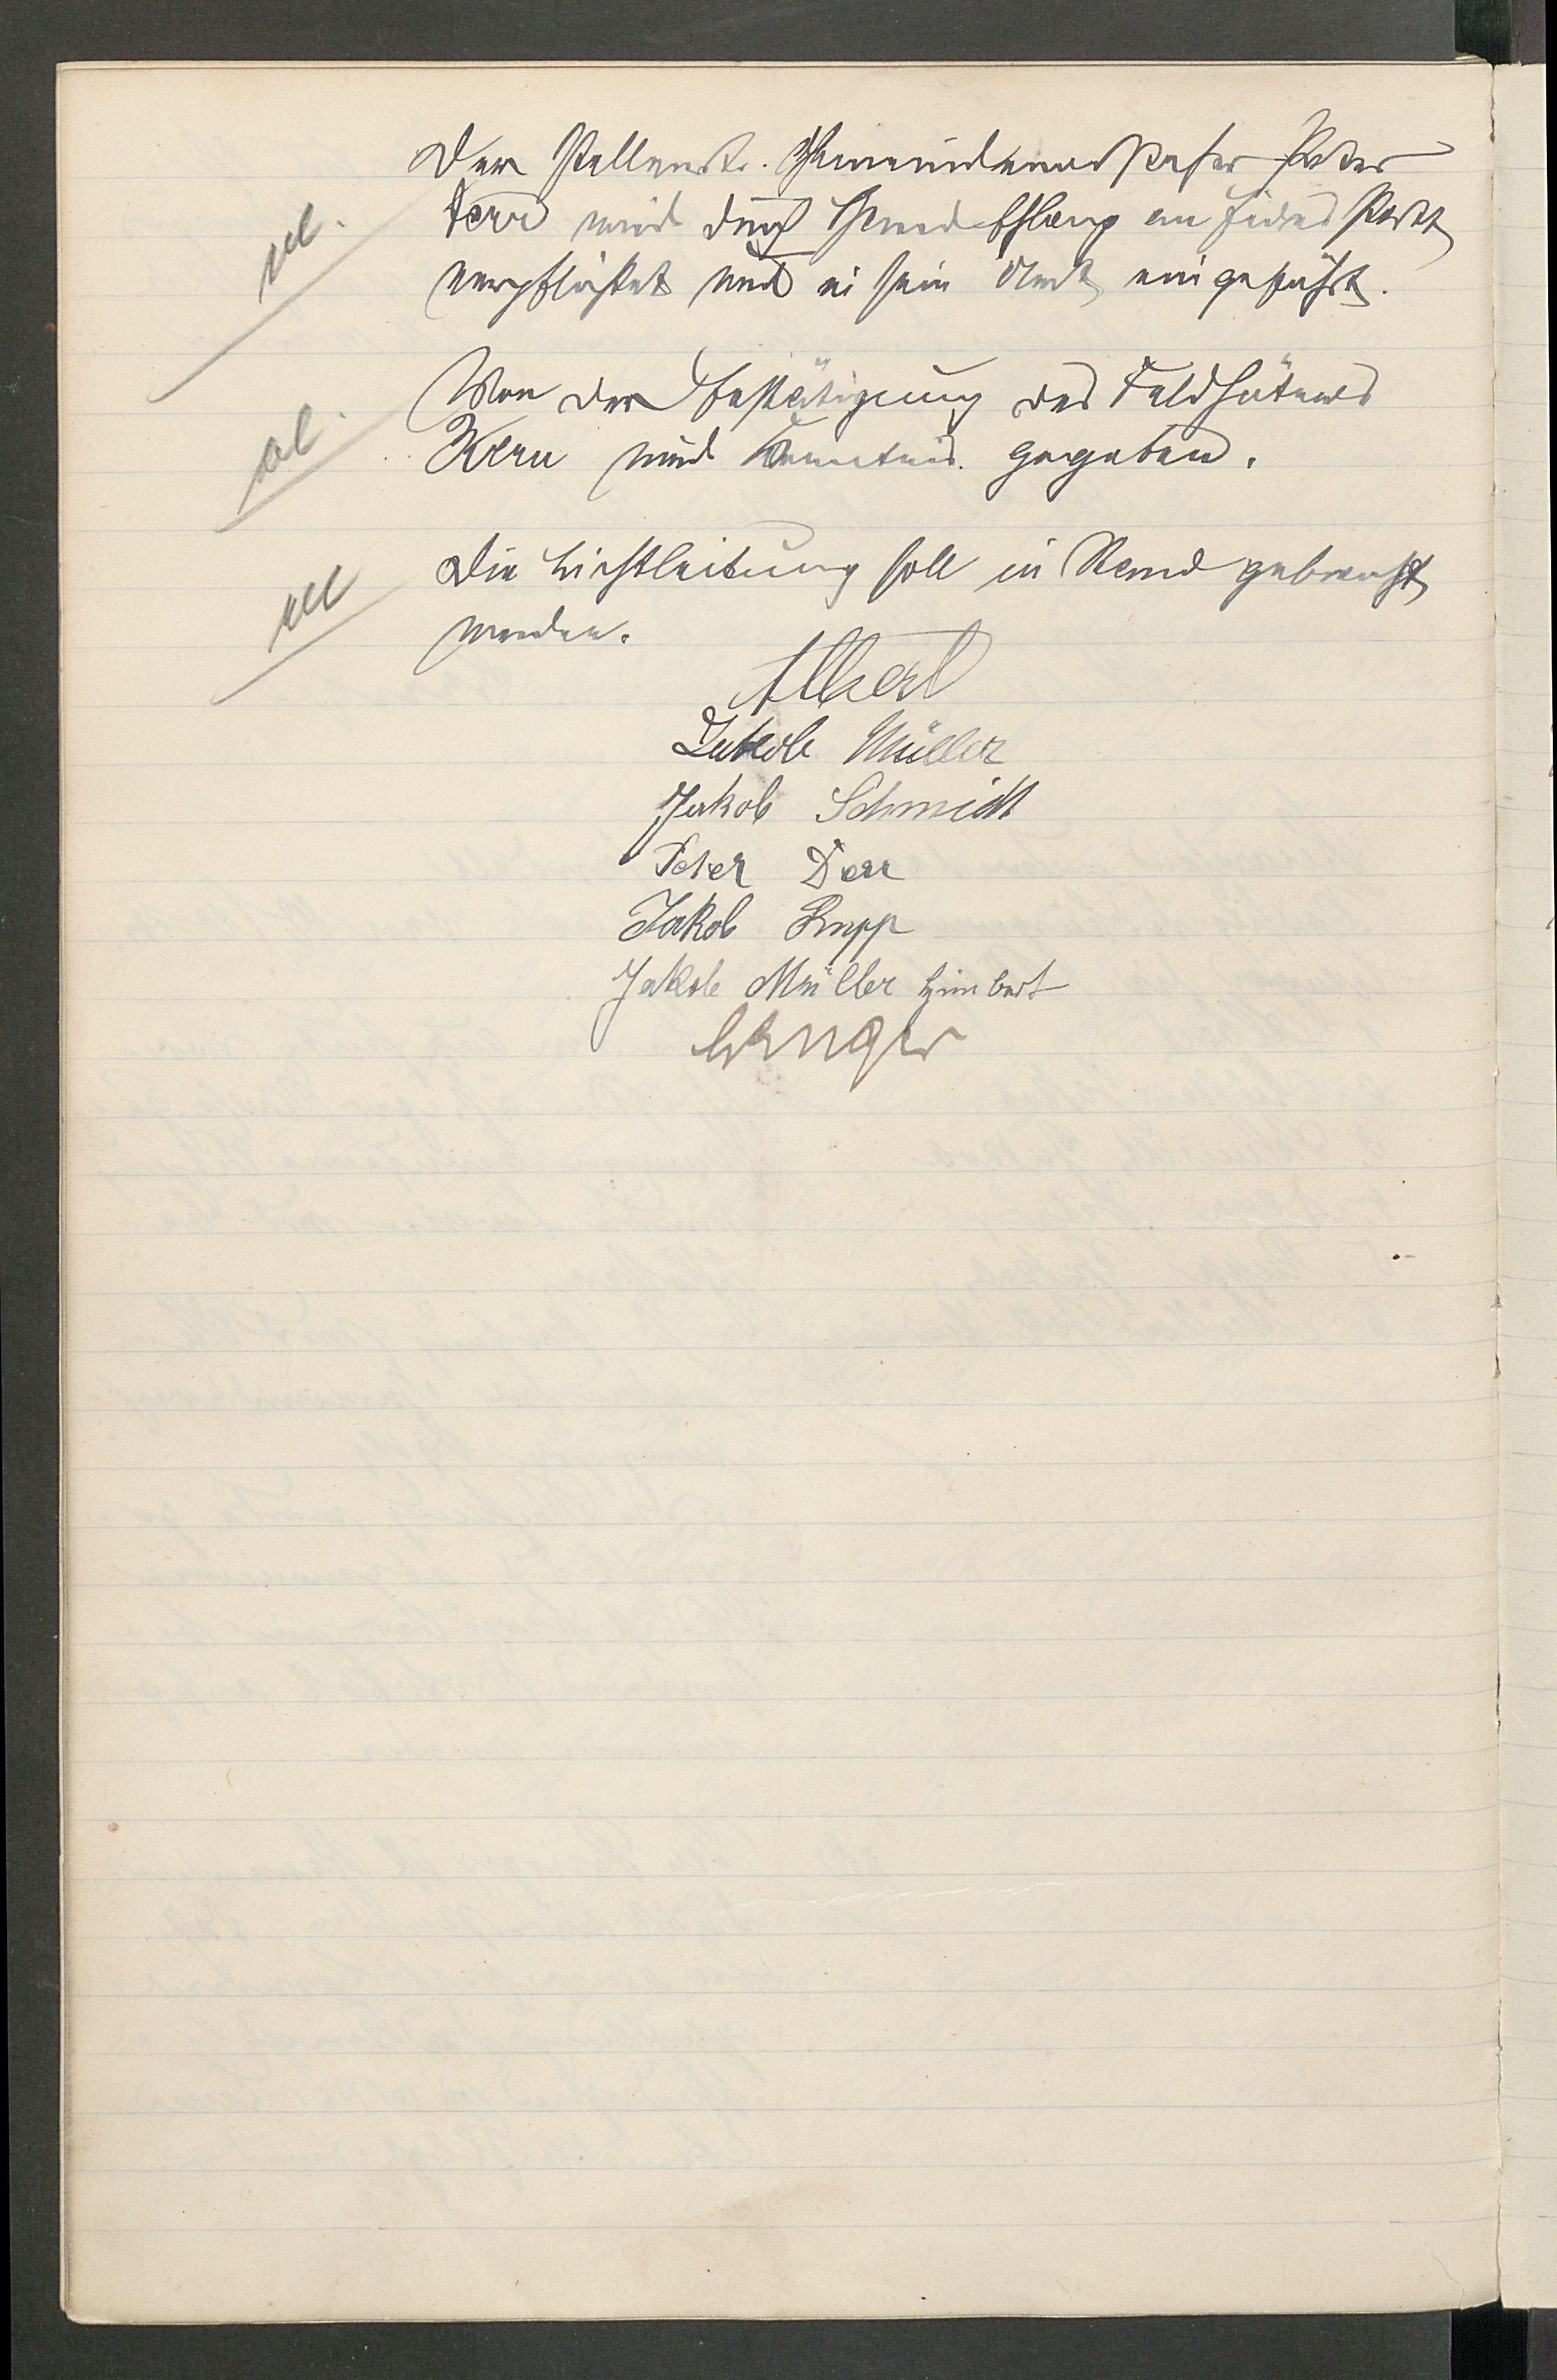 Der stellvertr. Gemeindevorsteher Peter
Derr wird durch Handschlag an Eides statt
verpflichtet und in sein Amt eingeführt.
Von der Bestätigung des Feldhüters
Kern wird Kenntnis gegeben.
Die Lichtleitung soll in Stand gebracht
werden.
Albert
Jakob Müller
Jakob Schmidt
Peter Derr
Jakob Rupp
Jakob Müller